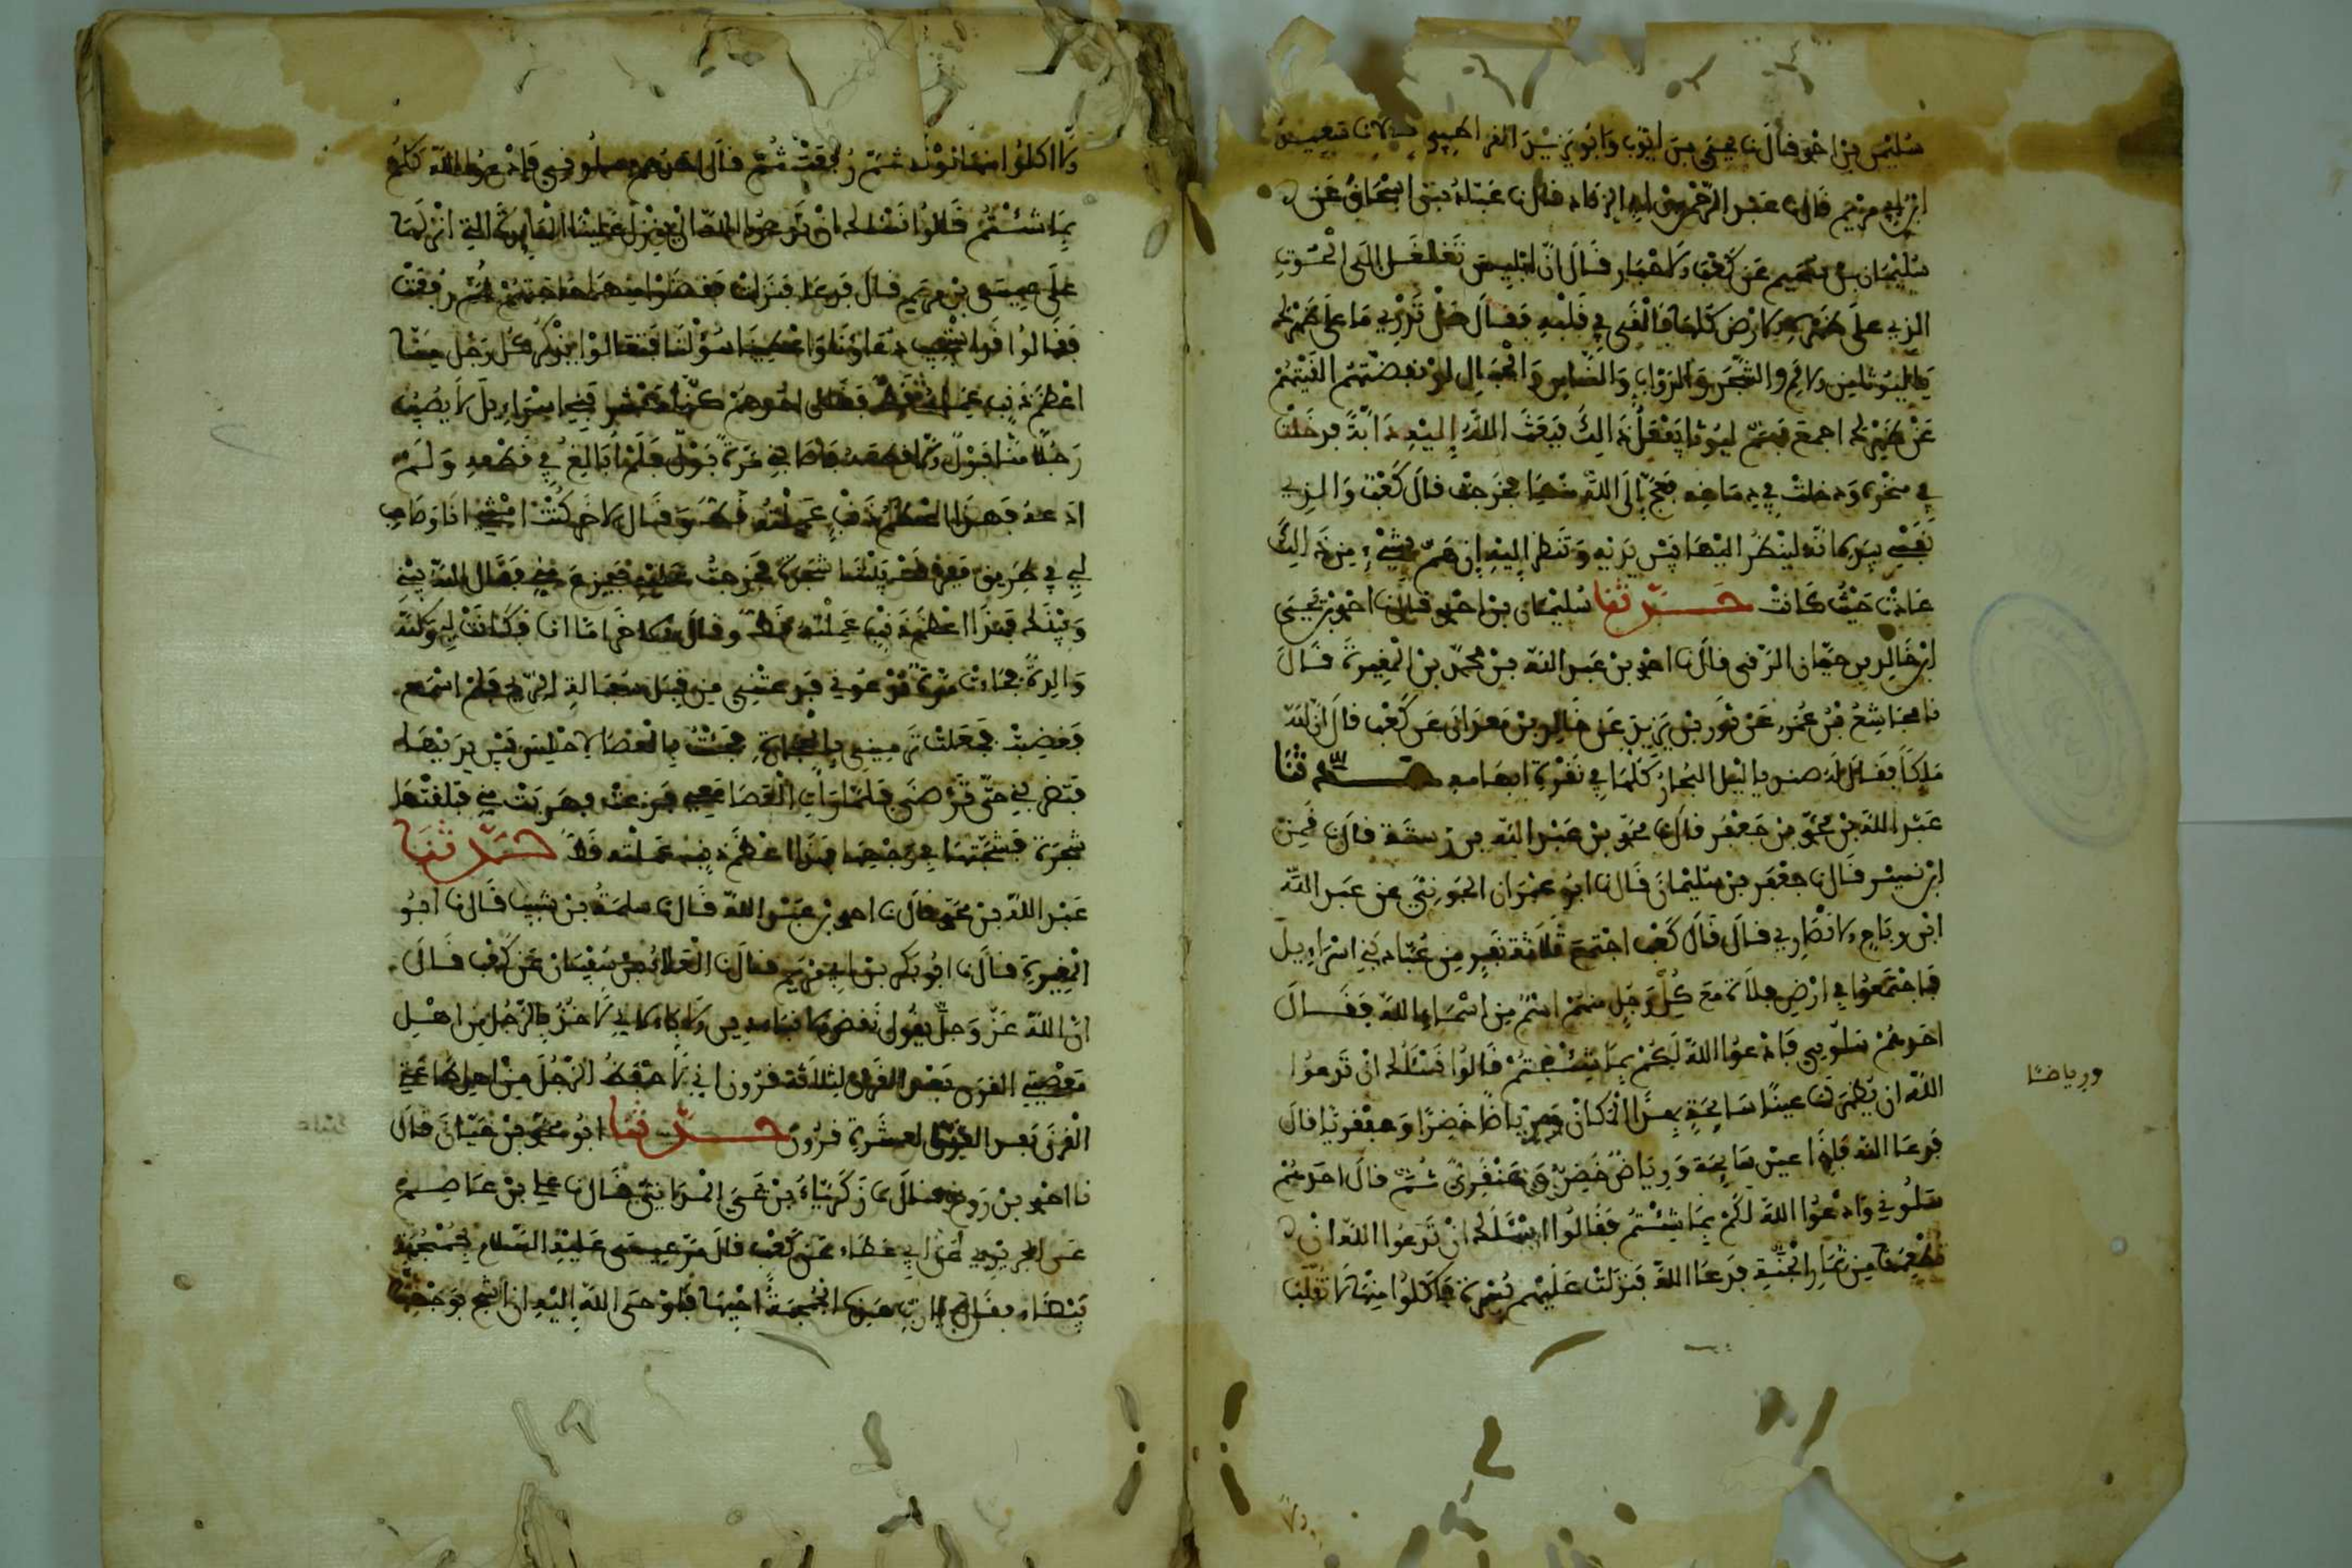 سليمن بن احمد قال نا يحيى بن ايوب وابو يزيد القراطيسي قالا نا سعيد
ابن ابي مريم قال نا عبد الرحمن بن ابي الزناد قال نا عباد بن اسحاق عن
سليمان بن سحيم عن كعب الاحبار قال ان ابليس تغلغل الى الحوت
الذي على ظهره الارض كلها فالقى في قلبه فقال هل تدري ما على ظهرك
يا ليوثا من الامم والشجر والدواب والناس والجبال لو نفضتهم القيتهم
عن ظهرك اجمع فهم ليوثا يفعل ذالك فبعث الله إليه دابة فدخلت
في منخره ودخلت في دماغه فعج إلى الله منها فخرجت قال كعب والذي
نفسي بيده انه لينظر اليها بين يديه وتنظر إليه إن هم بشيء من ذالك
عادت حيث كانت حدثنا سليمان بن احمد قال نا احمد بن يحيى
ابن خالد بن حيان الرقي قال نا احمد بن عبد الله بن محمد بن المغيرة قال
نا مجاشع بن عمرو عن ثور بن يزيد عن خالد بن معدان عن كعب قال ان لله
ملكا يقال له صندياليل البحار كلها في نقرة ابهامه حدثنا
عبد الله بن محمد بن جعفر قال نا محمد بن عبد الله بن رستة قال نا قطن
ابن نسير قال نا جعفر بن سليمان قال نا ابو عمران الجوني عن عبد الله
ابن رباح الانصاري قال قال كعب اجتمع ثلاثة نفر من عباد بني اسراءيل
فاجتمعوا في ارض فلاة مع كل رجل منهم اسم من اسماء الله فقال
احدهم سلوني فادعوا الله لكم بما شئتم قالوا نسئلك ان تدعوا
الله ان يظهر لنا عينا سايحة بهذا المكان ورياضا خضرا وعبقريا قال
فدعا الله فإذا عين سايحة ورياض خضر وعبقري ثم قال احدهم
سلوني وادعوا الله لكم بما شئتم فقالوا نسئلك ان تدعوا الله ان
تطعمنا من ثمار الجنة فدعا الله فنزلت عليهم بسرة فاكلوا منها لا تقلب
ورياضا
الا اكلوا منها لونا ثم رفعت ثم قال احدهم سلوني فادعوا الله لكم
بما شئتم قالوا نسئلك ان تدعوا الله ان ينزل علينا المايدة التي انزلها
على عيسى بن مريم قال فدعا فنزلت فقضوا منها حاجتهم ثم رفعت
فقالوا قد استجيب دعاؤنا واعطينا سؤلنا فتعالوا يذكر كل رجل منا
اعظم ذنب عمله قط فقال احدهم كنا معشر بني اسراءيل لا يصيب
رجلا منا بول الا قطعه فاصابني مرة بول فلم ابالغ في قطعه ولم
ادعه فهذا اعظم ذنب عملته قط وقال الاخر كنت امشي انا وصاحب
لي في طريق ففرقت بيننا شجرة فخرجت عليه ففزع مني فقال الله بيني
وبينك فهذا اعظم ذنب عملته قط وقال الاخر اما انا فكانت لي وكانت
والدة فجاءت مرة تدعوني فدعتني من قبل شمال الريح فلم اسمع
فغضبت فجعلت ترميني بالحجارة فجئت بالعصا لاجلس بين يديها
فتضربني حتى ترضى فلما رات العصا معي فزعت وهربت مني فتلقتها
شجرة فشجتها في وجهها فهذا اعظم ذنب عملته قط حدثنا
عبد الله بن محمد قال نا احمد بن عبد الله قال نا سلمة بن شبيب قال نا ابو
المغيرة قال نا ابو بكر بن ابي مريم قال نا العلاء بن سفيان عن كعب قال
ان الله عز وجل يقول
معصيتي القرن بعد القرن لثلاثة قرون اني لا حفظ الرجل من اهل طاعتي
القرن بعد القرن لعشرة قرون حدثنا ابو محمد بن حيان قال
نا احمد بن روح قال نا زكرياء بن يحيى المدايني قال نا علي بن عاصم
عن الجريري عن ابي عطاء عن كعب قال مر عيسى عليه السلام بجمجمة
بيضاء فقال يا رب هذه الجمجمة احيها فاوحى الله إليه ان اشح بوجهك